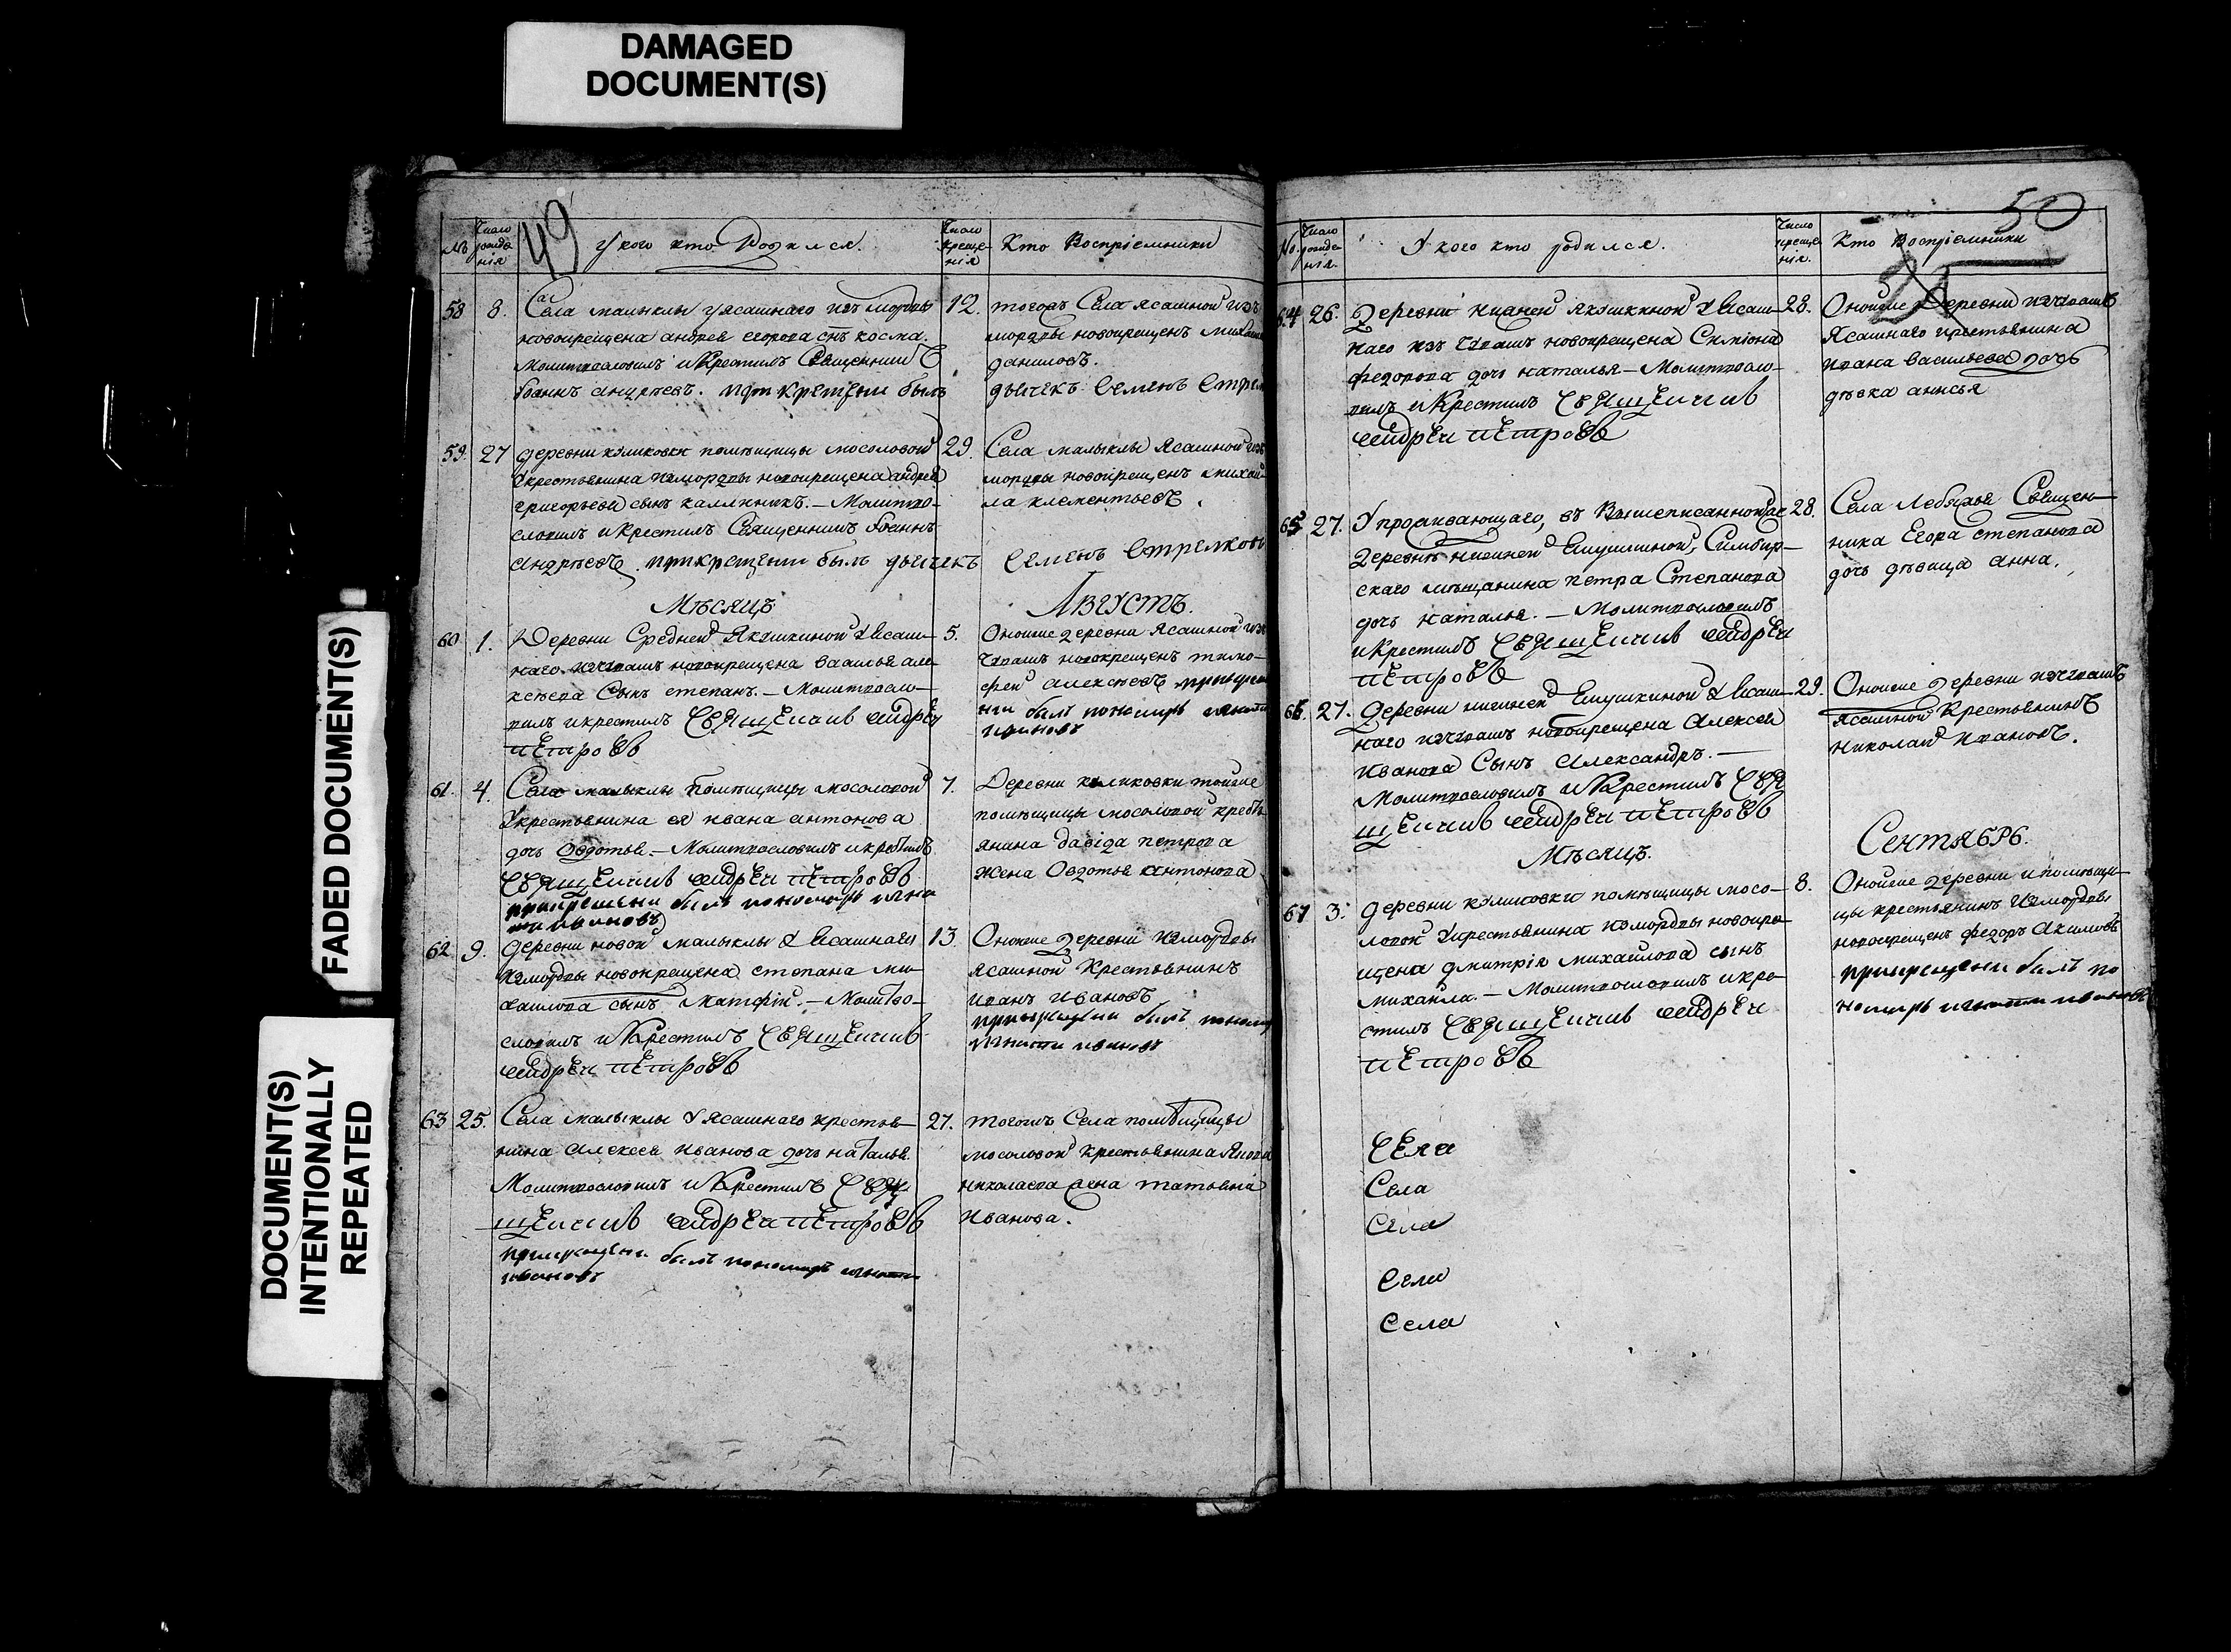 DAMAGED
DOCUMENT(S)
FADED DOCUMENT(S)
DOCUMENT(S)
INTENTIONALLY
REPEATED
49
№
Число рожденія
У кого кто Родился.
Число крещенія
Кто Воспріемники
58 8. Села малыклы у ясашнаго изъ мордвы
новокрещена андрея егорова снъ косма.
Молитвословилъ и Крестилъ Священникъ
Іоаннъ андреевъ. при крещени былъ
12. тогожъ Села ясашной изъ
мордвы новокрещенъ
даниловъ.
дьячекъ Семенъ
59. 27 деревни помѣщицы мосоловой
у крестьянина измордвы новокрещена андрея
григорьева сынъ каллиникъ. — Молитво-
словилъ и крестилъ Священникъ Іоаннъ
андреевъ. при крещени былъ дьячекъ
29. Села малыклы Ясашной изъ
мордвы новокрещенъ михай-
ла клементьевъ.
Семенъ Стрелковъ
Мѣсяцъ Августъ.
60 1. Деревни Средней Якушкиной у Ясаш-
наго изчувашъ новокрещена василья але-
ксѣева Сынъ степанъ. — Молитвосло-
вилъ и крестилъ Священникъ андреи
петровъ
5. Оноиже деревни Ясашной изъ
чувашъ новокрещенъ тимо-
фей алексѣевъ
былъ пономарь
ивановъ
61. 4. Села малыклы помѣщицы мосоловой
у крестьянина ея ивана антонова
дочь Овдотья. — Молитвословилъ и крестилъ
Священникъ андреи петровъ
при крещени былъ пономарь
ивановъ
7. Деревни тойже
помѣщицы мосоловой кресть-
янина давіда петрова
жена Овдотья антонова
62. 9. деревни новой малыклы у Ясашнаго
измордвы новокрещена степана ми-
хаилова сынъ матфій. — Молитво-
словилъ и Крестилъ Священникъ
андреи петровъ
13. Оноиже Деревни измордвы
ясашной Крестьянинъ
иванъ ивановъ
при крещени былъ
ивановъ
63 25. Села малыклы у Ясашнаго крестья-
нина алексея иванова дочь наталья
Молитвословилъ и Крестилъ Свя-
щенникъ андреи петровъ
при крещени былъ пономарь
ивановъ
27. тогожъ Села помѣщицы
мосоловой крестьянина
николаева жена татьяна
иванова.
50
№
Число рожденія.
У кого кто родился.
Число крещенія.
Кто Воспріемники
64 26. Деревни Якушкиной у Ясаш-
наго изъ чувашъ новокрещена Симіона
федорова дочь наталья — Молитвосло-
вилъ и Крестилъ Священникъ
андреи петровъ
28. Оноиже Деревни изчувашъ
Ясашнаго крестьянина
ивана васильева дочь
дѣвка анисья
65 27. У проживающаго, въ Вышеписанной же
деревнѣ нижней Якушкиной, Симбир-
скаго мѣщанина петра Степанова
дочь наталья. — Молитвословилъ
и крестилъ Священникъ андреи
петровъ
28. Села Лебяжья Священ-
ника Егора степанова
дочь дѣвица анна.
66. 27. Деревни нижней Якушкиной у Ясаш-
наго изчувашъ новокрещена Алексея
иванова Сынъ Александръ. —
Молитвословилъ и Крестилъ Свя-
щенникъ андреи петровъ
29. Оноиже деревни изчувашъ
Ясашной Крестьянинъ
николай ивановъ.
Мѣсяцъ. Сентябрь.
67 3. деревни помѣщицы мосо-
ловой у крестьянина измордвы новокре-
щена дмитрія михайлова сынъ
михайла. — Молитвословилъ и кре-
стилъ Священникъ андреи
петровъ
8. Оноиже деревни и помѣщи-
цы крестьянинъ измордвы
новокрещенъ федоръ акимовъ
при крещени былъ по
номарь ивановъ
Села
Села
Села
Села
Села